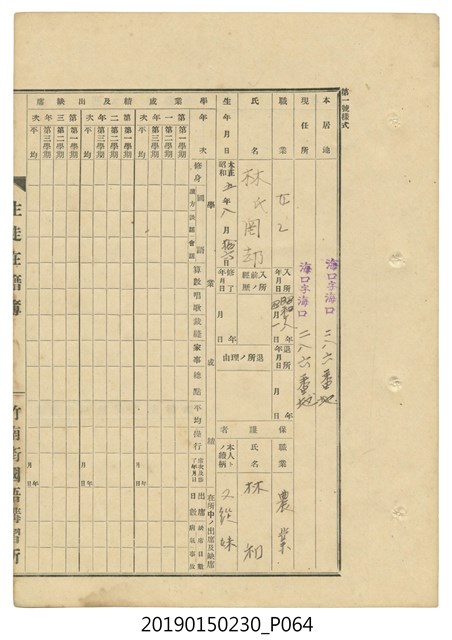 第一號樣式
本居地
海口字海口 二八六番地
現住所
海口字海口 二八六番地
職業
女工
入所年月日
年 月 日
退所年月日
年 月 日
保護者
職業
農業
氏名
林氏罔却
入所前ノ經歷
修了年月日
退所ノ理由
氏名
林 和
本人トノ續柄
又從妹
生年月日
大正 昭和 五年八月 日
學年次
學業成績
修身
國語
算數
唱歌
裁縫
家事
總點
平均
操行
席次及修了年月日
在所中ノ出席及缺席
出席日數
缺席日數
病氣
事故
學業成績及出缺席
第一年次
第一學期
第二學期
第三學期
平均
第二年次
第一學期
第二學期
第三學期
平均
年 月 日
第三年次
第一學期
第二學期
第三學期
平均
年 月 日
生徒在籍簿
竹南街國語講習所
20190150230_P064